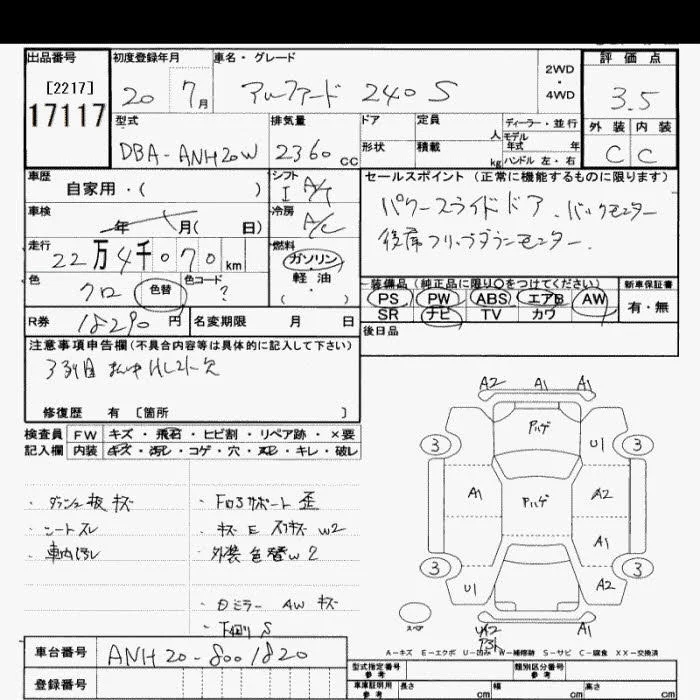 出品番号
[2217]
17117
初度登録年月
20 7月
車名・グレード
アルファード 240 S
2WD
・
4WD
評価点
3.5
外装 内装
C C
型式
DBA-ANH20W
排気量
2360 CC
ドア
形状
定員
人
積載
kg
ディーラー・並行
モデル
年式 年
ハンドル 左・右
車歴
自家用・( )
シフト
I A/T
車検
年 月( 日)
冷房
A/C
走行
22万4千070km
燃料
ガソリン
・
軽油
( ・ )
色
クロ
色替
色コード
?
R券 18290円
名変期限 月 日
セールスポイント (正常に機能するものに限ります)
パワースライドドア、バックモニター
後席フリップダウンモニター.
装備品(純正品に限り○をつけてください)
PS PW ABS エアB AW
SR ナビ TV カワ
新車保証書
有・無
後日品
注意事項申告欄(不具合内容等は具体的に記入して下さい)
3列目
修復歴 有 [箇所 ]
検査員 FW キズ・飛石・ヒビ割・リペア跡・×要
記入欄 内装 キズ・汚レ・コゲ・穴・スレ・キレ・破レ
・ダッシュ板キズ
・シートスレ
・車内汚レ
・Fロアサポート歪
・キズE スリキズ W2
・外装色替W2
・Dミラー AW キズ
・下廻りS
A2 A1 A1
アルゲ
3 U1 3
A1 アルゲ A2
A1
3 3
U1 A2
スペア
A1
A-キズ E-エクボ U-凹み W-補修跡 S-サビ C-腐食 XX-交換済
車台番号
ANH20-8001820
登録番号
型式指定番号
参考
類別区分番号
参考
車庫証明用
参考
長さ cm
幅 cm
高さ cm